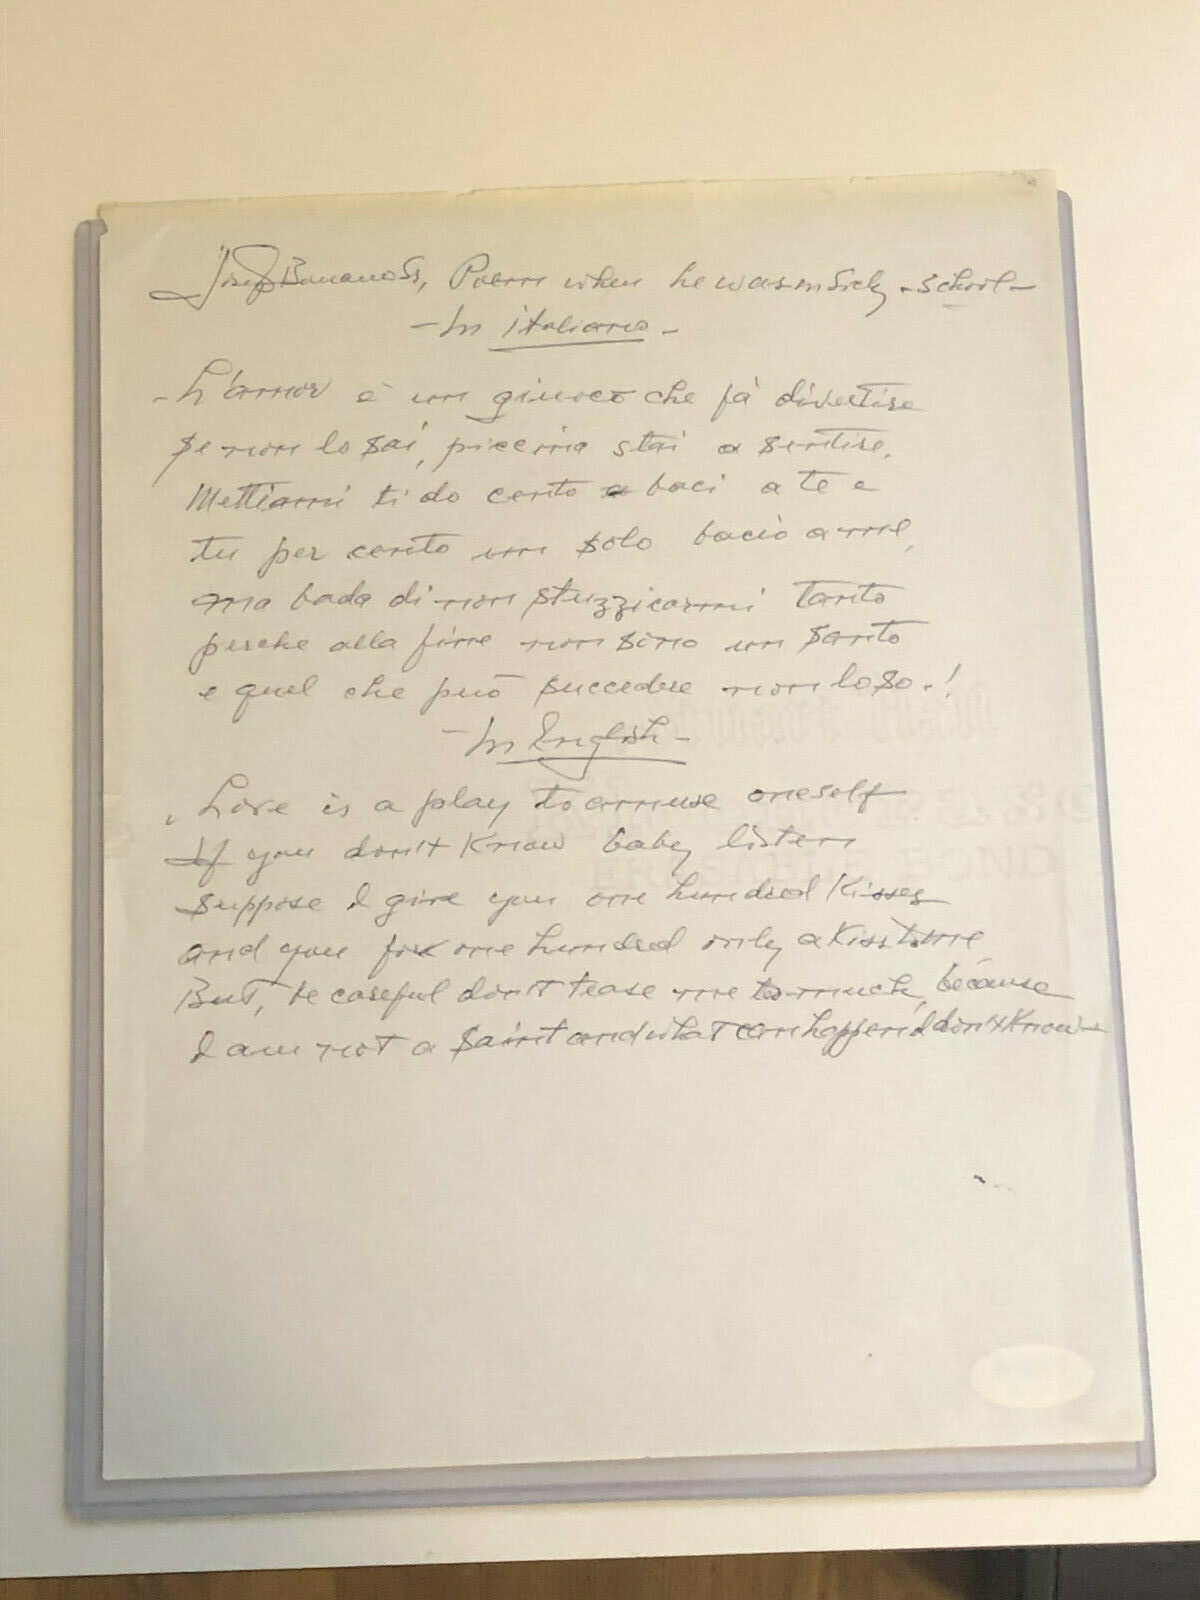 Joseph Bonanno Sr, Poem when he was in Sicily - school -
- In italiano -
- L'amor è un giuoco che fà divertire
se non lo sai, piccina stai a sentire,
Mettiami ti do cento baci a te e
tu per cento un solo bacio a me,
ma bada di non stuzzicarmi tanto
perche alla fine non sono un santo
e quel che può succedere non lo so.!
- In English -
Love is a play to amuse oneself
If you don't Know baby listen
suppose I give you one hundred Kisses
and you for one hundred only a Kiss to me
But, be careful don't tease me to much, because
I am not a saint and what can happen I don't Know -